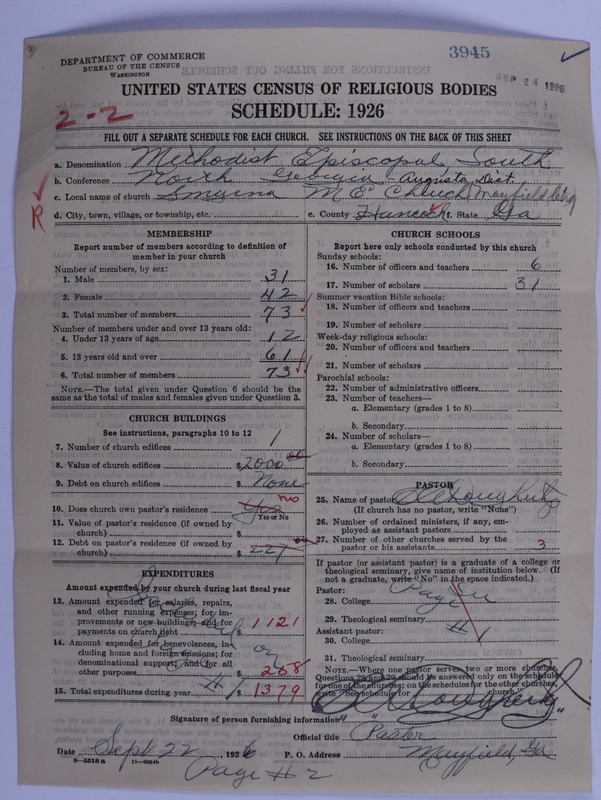 3945
DEPARTMENT OF COMMERCE
BUREAU OF THE CENSUS
WASHINGTON
SEP 24 1926
UNITED STATES CENSUS OF RELIGIOUS BODIES
SCHEDULE: 1926
2-2
FILL OUT A SEPARATE SCHEDULE FOR EACH CHURCH. SEE INSTRUCTIONS ON THE BACK OF THIS SHEET
a. Denomination Methodist Episcopal South
b. Conference North Georgia Augusta Dist.
c. Local name of church Smyrna M E Church Mayfield
R
d. City, town, village, or township, etc.
e. County Hancock f. State Ga
MEMBERSHIP
Report number of members according to definition of
member in your church
Number of members, by sex:
1. Male 31
2. Female 42
3. Total number of members 73
Number of members under and over 13 years old:
4. Under 13 years of age 12
5. 13 years old and over 61
6. Total number of members 73
NOTE.—The total given under Question 6 should be the
same as the total of males and females given under Question 3.
CHURCH BUILDINGS
See instructions, paragraphs 10 to 12
7. Number of church edifices 1
8. Value of church edifices $2000.00
9. Debt on church edifices $None
10. Does church own pastor's residence? Yes no
Yes or No
11. Value of pastor's residence (if owned by
church) $
12. Debt on pastor's residence (if owned by
church) $227
EXPENDITURES
Amount expended by your church during last fiscal year
13. Amount expended for salaries, repairs,
and other running expenses; for im-
provements or new building; and for
payments on church debt $1121
14. Amount expended for benevolences, in-
cluding home and foreign missions; for
denominational support; and for all
other purposes $258
15. Total expenditures during year $1379
CHURCH SCHOOLS
Report here only schools conducted by this church
Sunday schools:
16. Number of officers and teachers 6
17. Number of scholars 31
Summer vacation Bible schools:
18. Number of officers and teachers
19. Number of scholars
Week-day religious schools:
20. Number of officers and teachers
21. Number of scholars
Parochial schools:
22. Number of administrative officers
23. Number of teachers—
a. Elementary (grades 1 to 8)
b. Secondary
24. Number of scholars—
a. Elementary (grades 1 to 8)
b. Secondary
PASTOR
25. Name of pastor
(If church has no pastor, write "None")
26. Number of ordained ministers, if any, em-
ployed as assistant pastors
27. Number of other churches served by the
pastor or his assistants 3
If pastor (or assistant pastor) is a graduate of a college or
theological seminary, give name of institution below. (If
not a graduate, write "No" in the space indicated.)
Pastor:
28. College Page
29. Theological seminary #1
Assistant pastor:
30. College
31. Theological seminary
NOTE.—Where one pastor serves two or more churches,
Questions 28 and 29 should be answered only on the schedule
for one of the churches; on the schedules for the other churches,
write "See schedule for church."
Signature of person furnishing information
Official title Pastor
Date Sept 22 1926
P. O. Address Mayfield, Ga
8—5518 a
Page #2